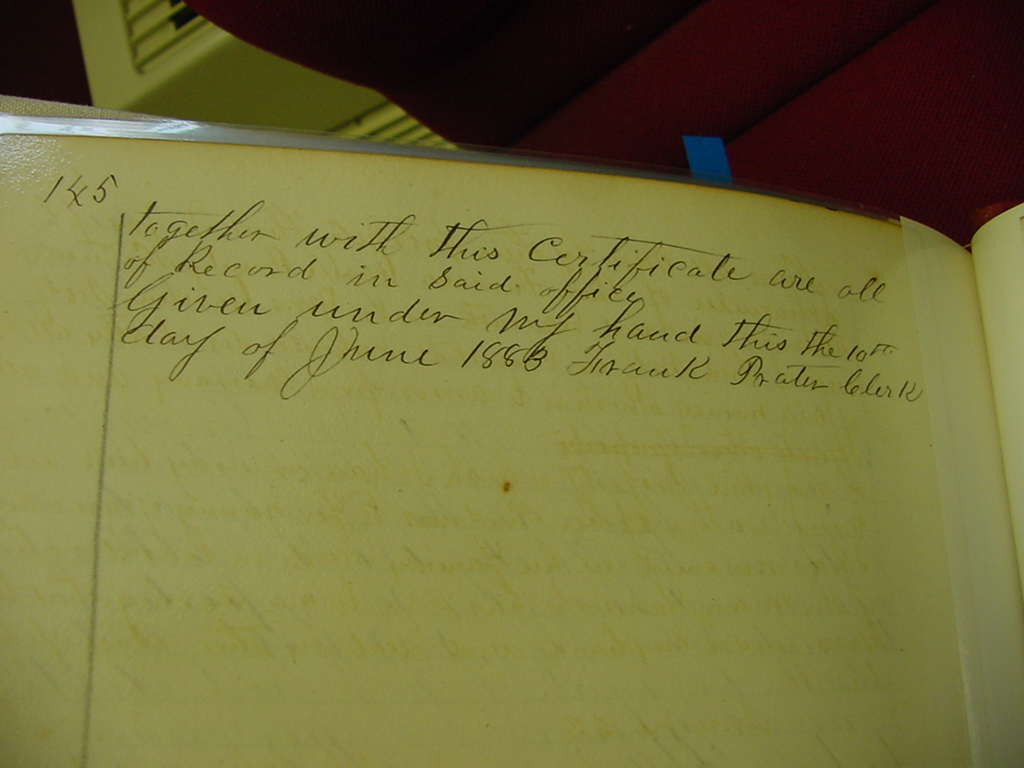 145
together with this Certificate are all
of Record in said office
Given under my hand this the 10th
day of June 1886 Frank Prater Clerk